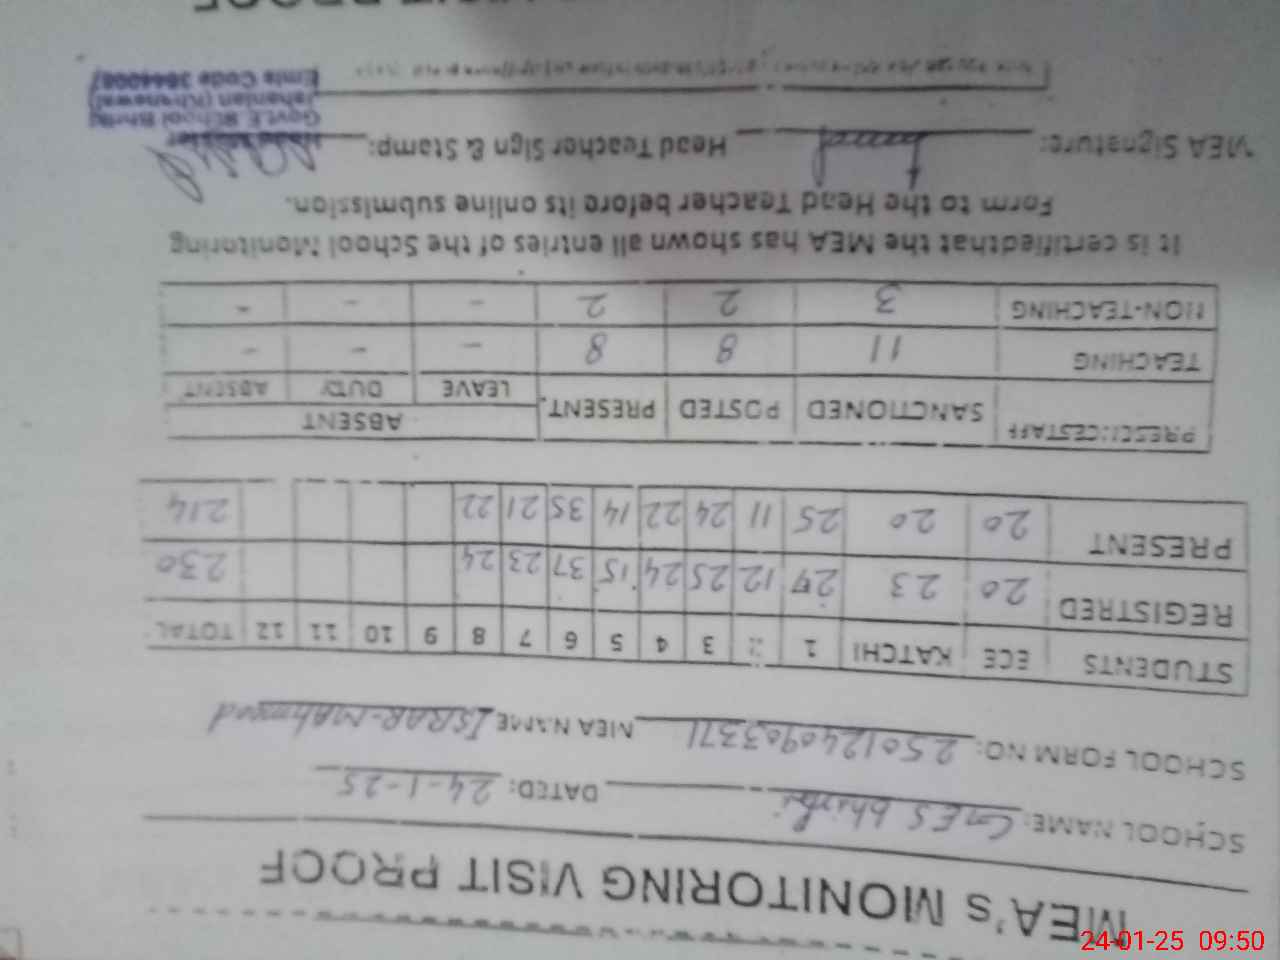 MEA's MONITORING VISIT PROOF
SCHOOL NAME: GES DATED: 24-1-25
SCHOOL FORM NO: 2501240903371 MEA NAME ISRAR-MAhmood
STUDENTS ECE KATCHI 1 2 3 4 5 6 7 8 9 10 11 12 TOTAL
REGISTRED 20 23 27 12 25 24 15 37 23 24 230
PRESENT 20 20 25 11 24 22 14 35 21 22 214
ABSENT
PRESENCESTAFF SANCTIONED POSTED PRESENT. LEAVE DUTY ABSENT
TEACHING 11 8 8 - - -
NON-TEACHING 3 2 2 - - -
It is certifiedthat the MEA has shown all entries of the School Monitoring
Form to the Head Teacher before its online submission.
MEA Signature: Head Teacher Sign & Stamp:
Govt.E School
Jahanian (Khanewal)
Emis Code
24-01-25 09:50